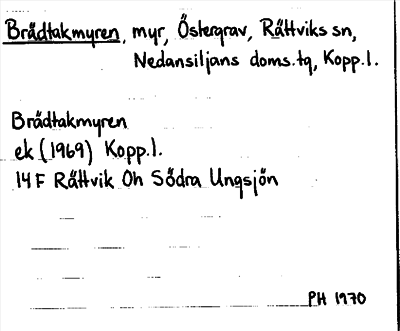 Brådtakmyren, myr, Östergrav, Rättviks sn,
Nedansiljans doms.tg, Kopp.l.
Brådtakmyren
ek (1969) Kopp.l.
14 F Rättvik Oh Södra Ungsjön
PH 1970